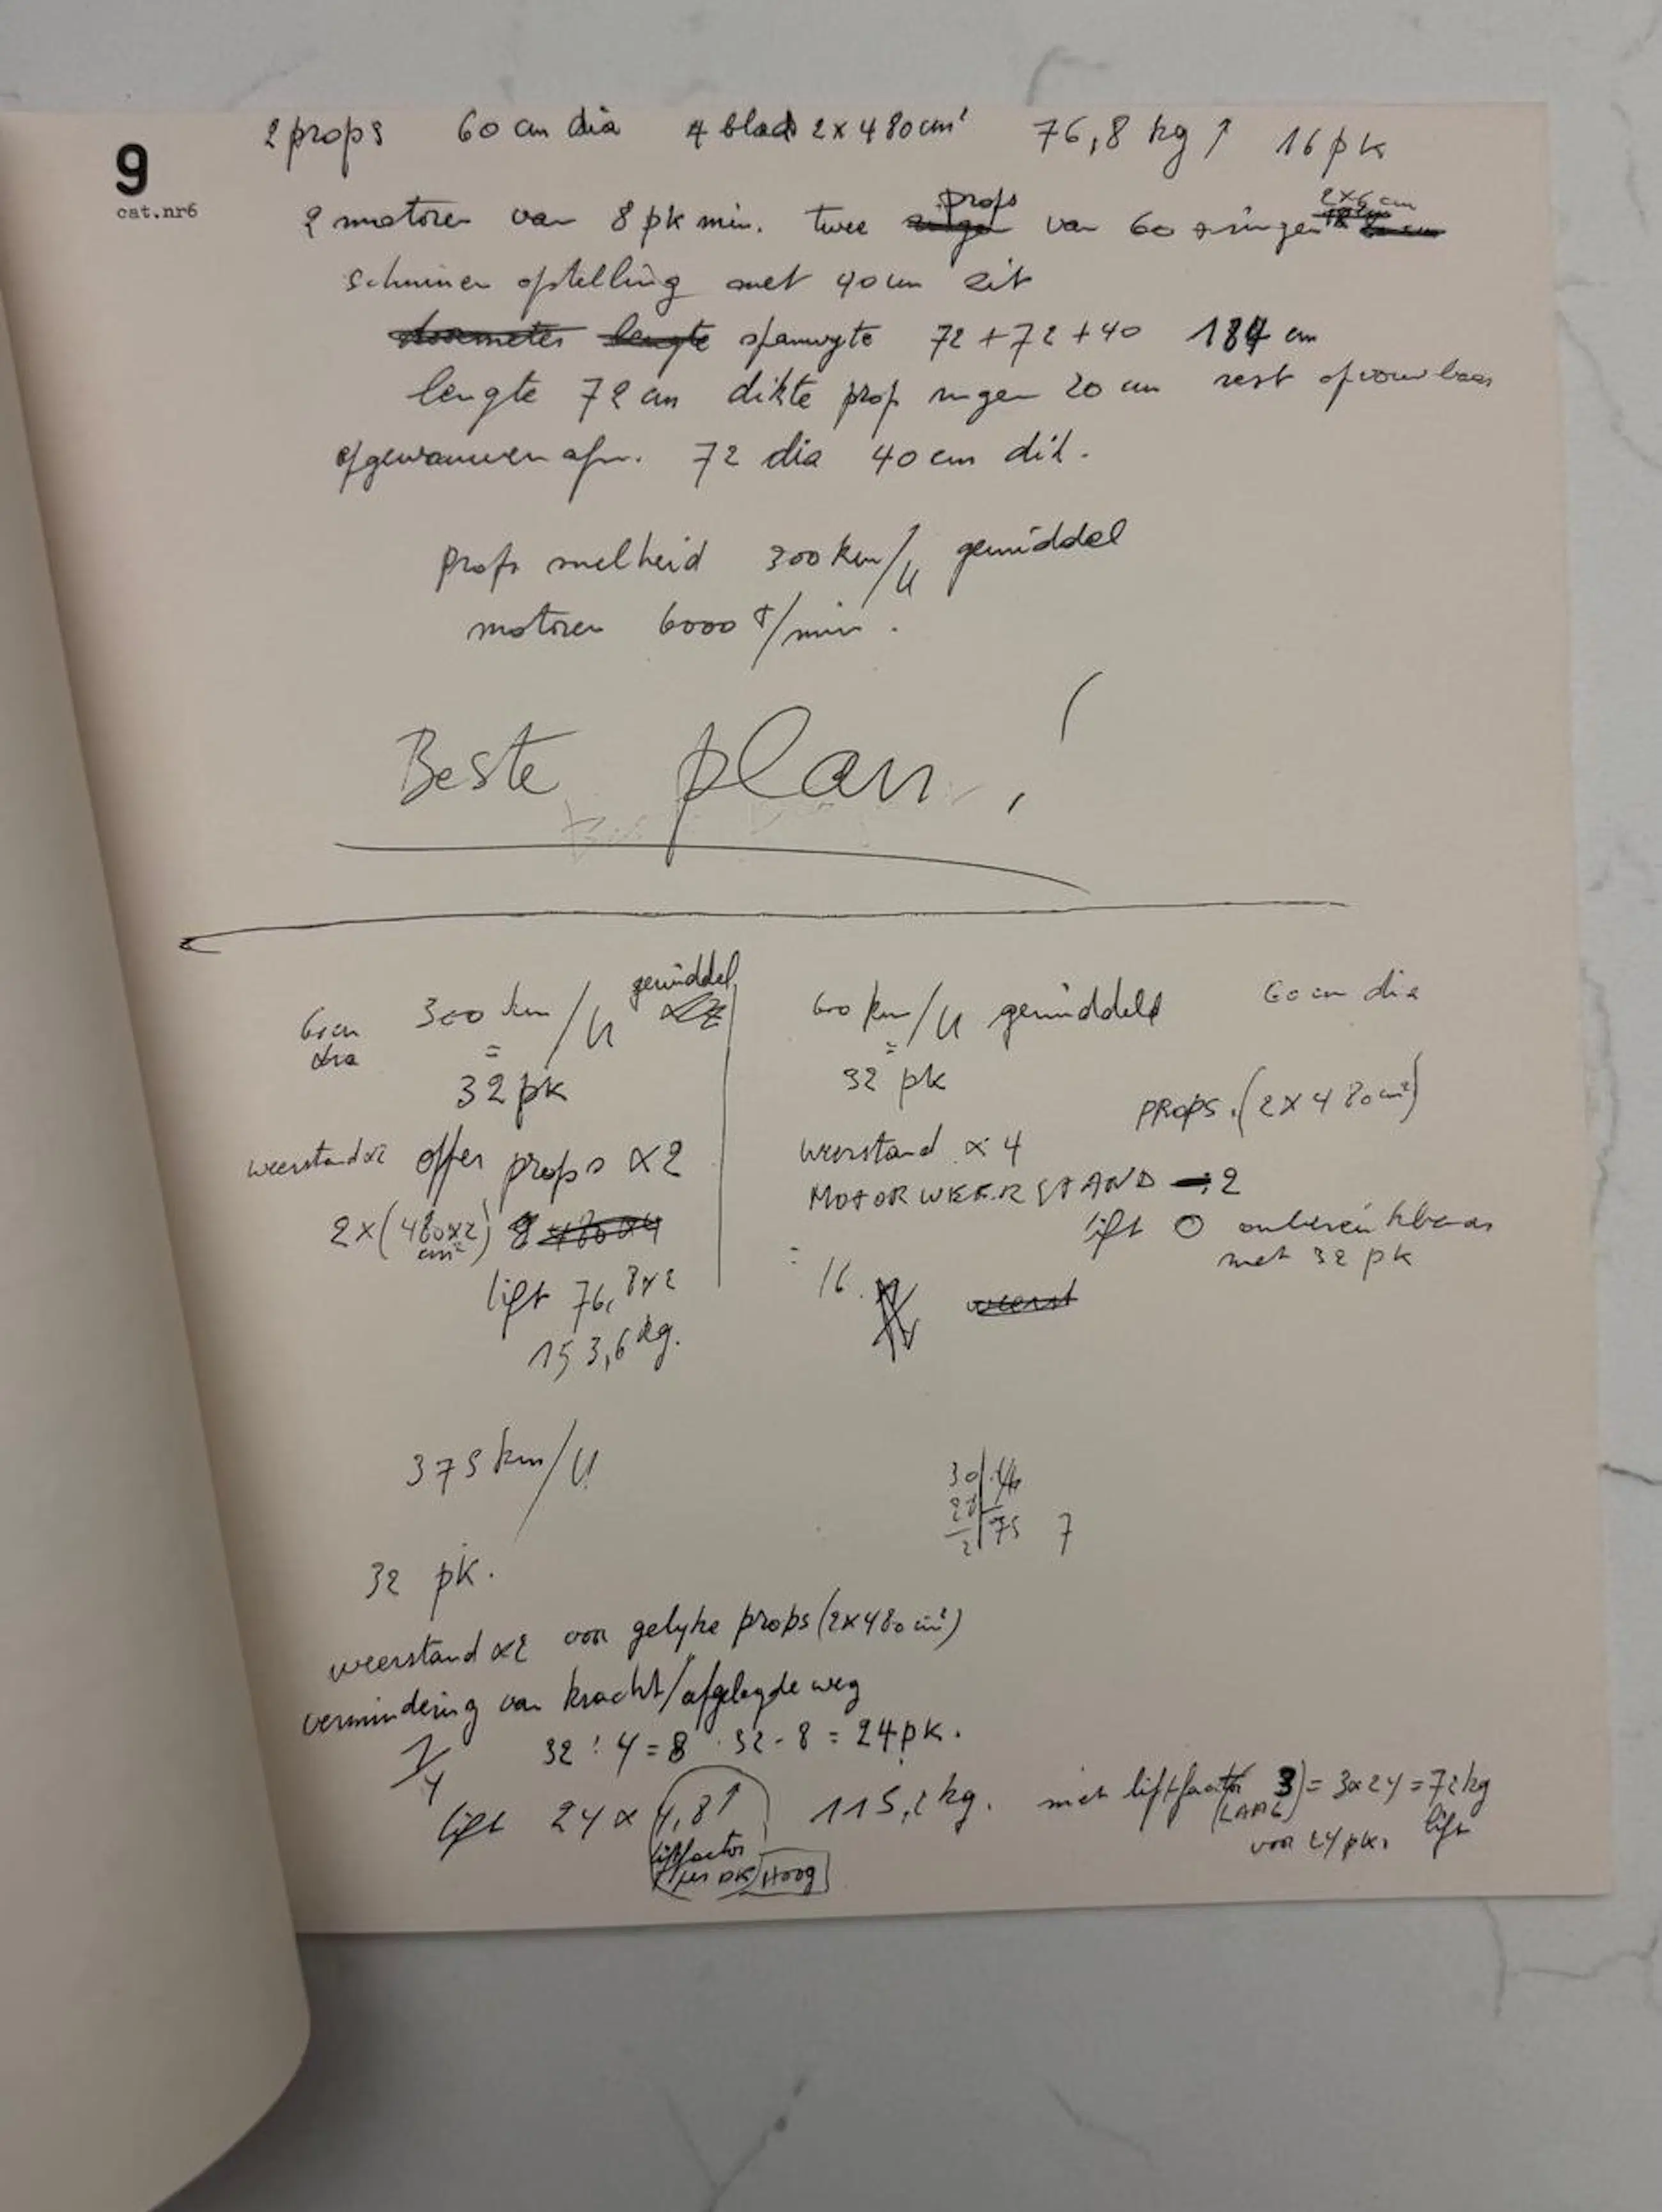 9
cat.nr6
2 props 60 cm dia 4 blad 2 x 480 cm² 76,8 kg ↑ 16 pk
2 motoren van 8 pk min. twee props van 60 + ringen 2x6 cm
schuinen opstelling met 40 cm zit
spanwyte 72 + 72 + 40 184 cm
lengte 72 cm dikte prop ringen 20 cm rest opvouwbaar
opgevouwen afm. 72 dia 40 cm dik.
Props snelheid 300 km/u gemiddel
motoren 6000 t/min.
Beste plan!
60 cm dia 300 km/u gemiddel
=
32 pk
weerstand x2 offer props x2
2 x (480x2 cm²)
lift 76,8 x 2
153,6 kg.
600 km/u gemiddeld 60 cm dia
=
32 pk
PROPS. (2 x 480 cm²)
weerstand x 4
MOTORWEERSTAND : 2
lift 0 onbereikbaar
met 32 pk
= 16.
375 km/u
30
28
2
75 7
32 pk.
weerstand x2 voor gelyke props (2x480 cm²)
vermindering van kracht/afgelegde weg
1/4 32 : 4 = 8 32 - 8 = 24 pk.
lift 24 x 4,8 ↑ 115,2 kg. met liftfactor 3 = 3x24 = 72 kg
liftfactor (LAAG) voor 24 pk. lift
per pk Hoog